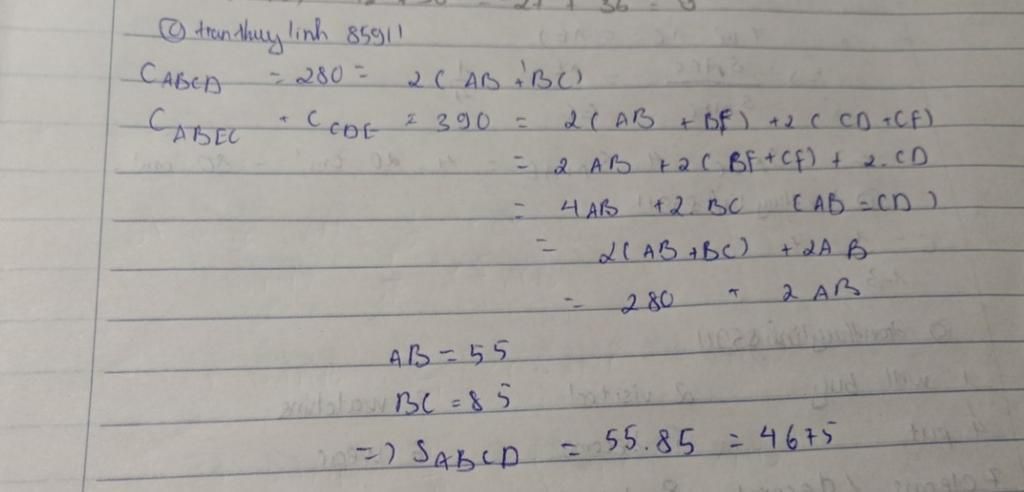 © tranthuylinh 85911
C ABCD = 280 = 2( AB + BC)
C ABEC + C CDE = 390 = 2( AB + BF) +2( CD +CF)
= 2 AB +2( BF+CF) + 2.CD
= 4AB +2. BC (AB = CD)
= 2(AB +BC) +2AB
= 280 + 2 AB
AB = 55
BC = 85
=> S ABCD = 55.85 = 4675